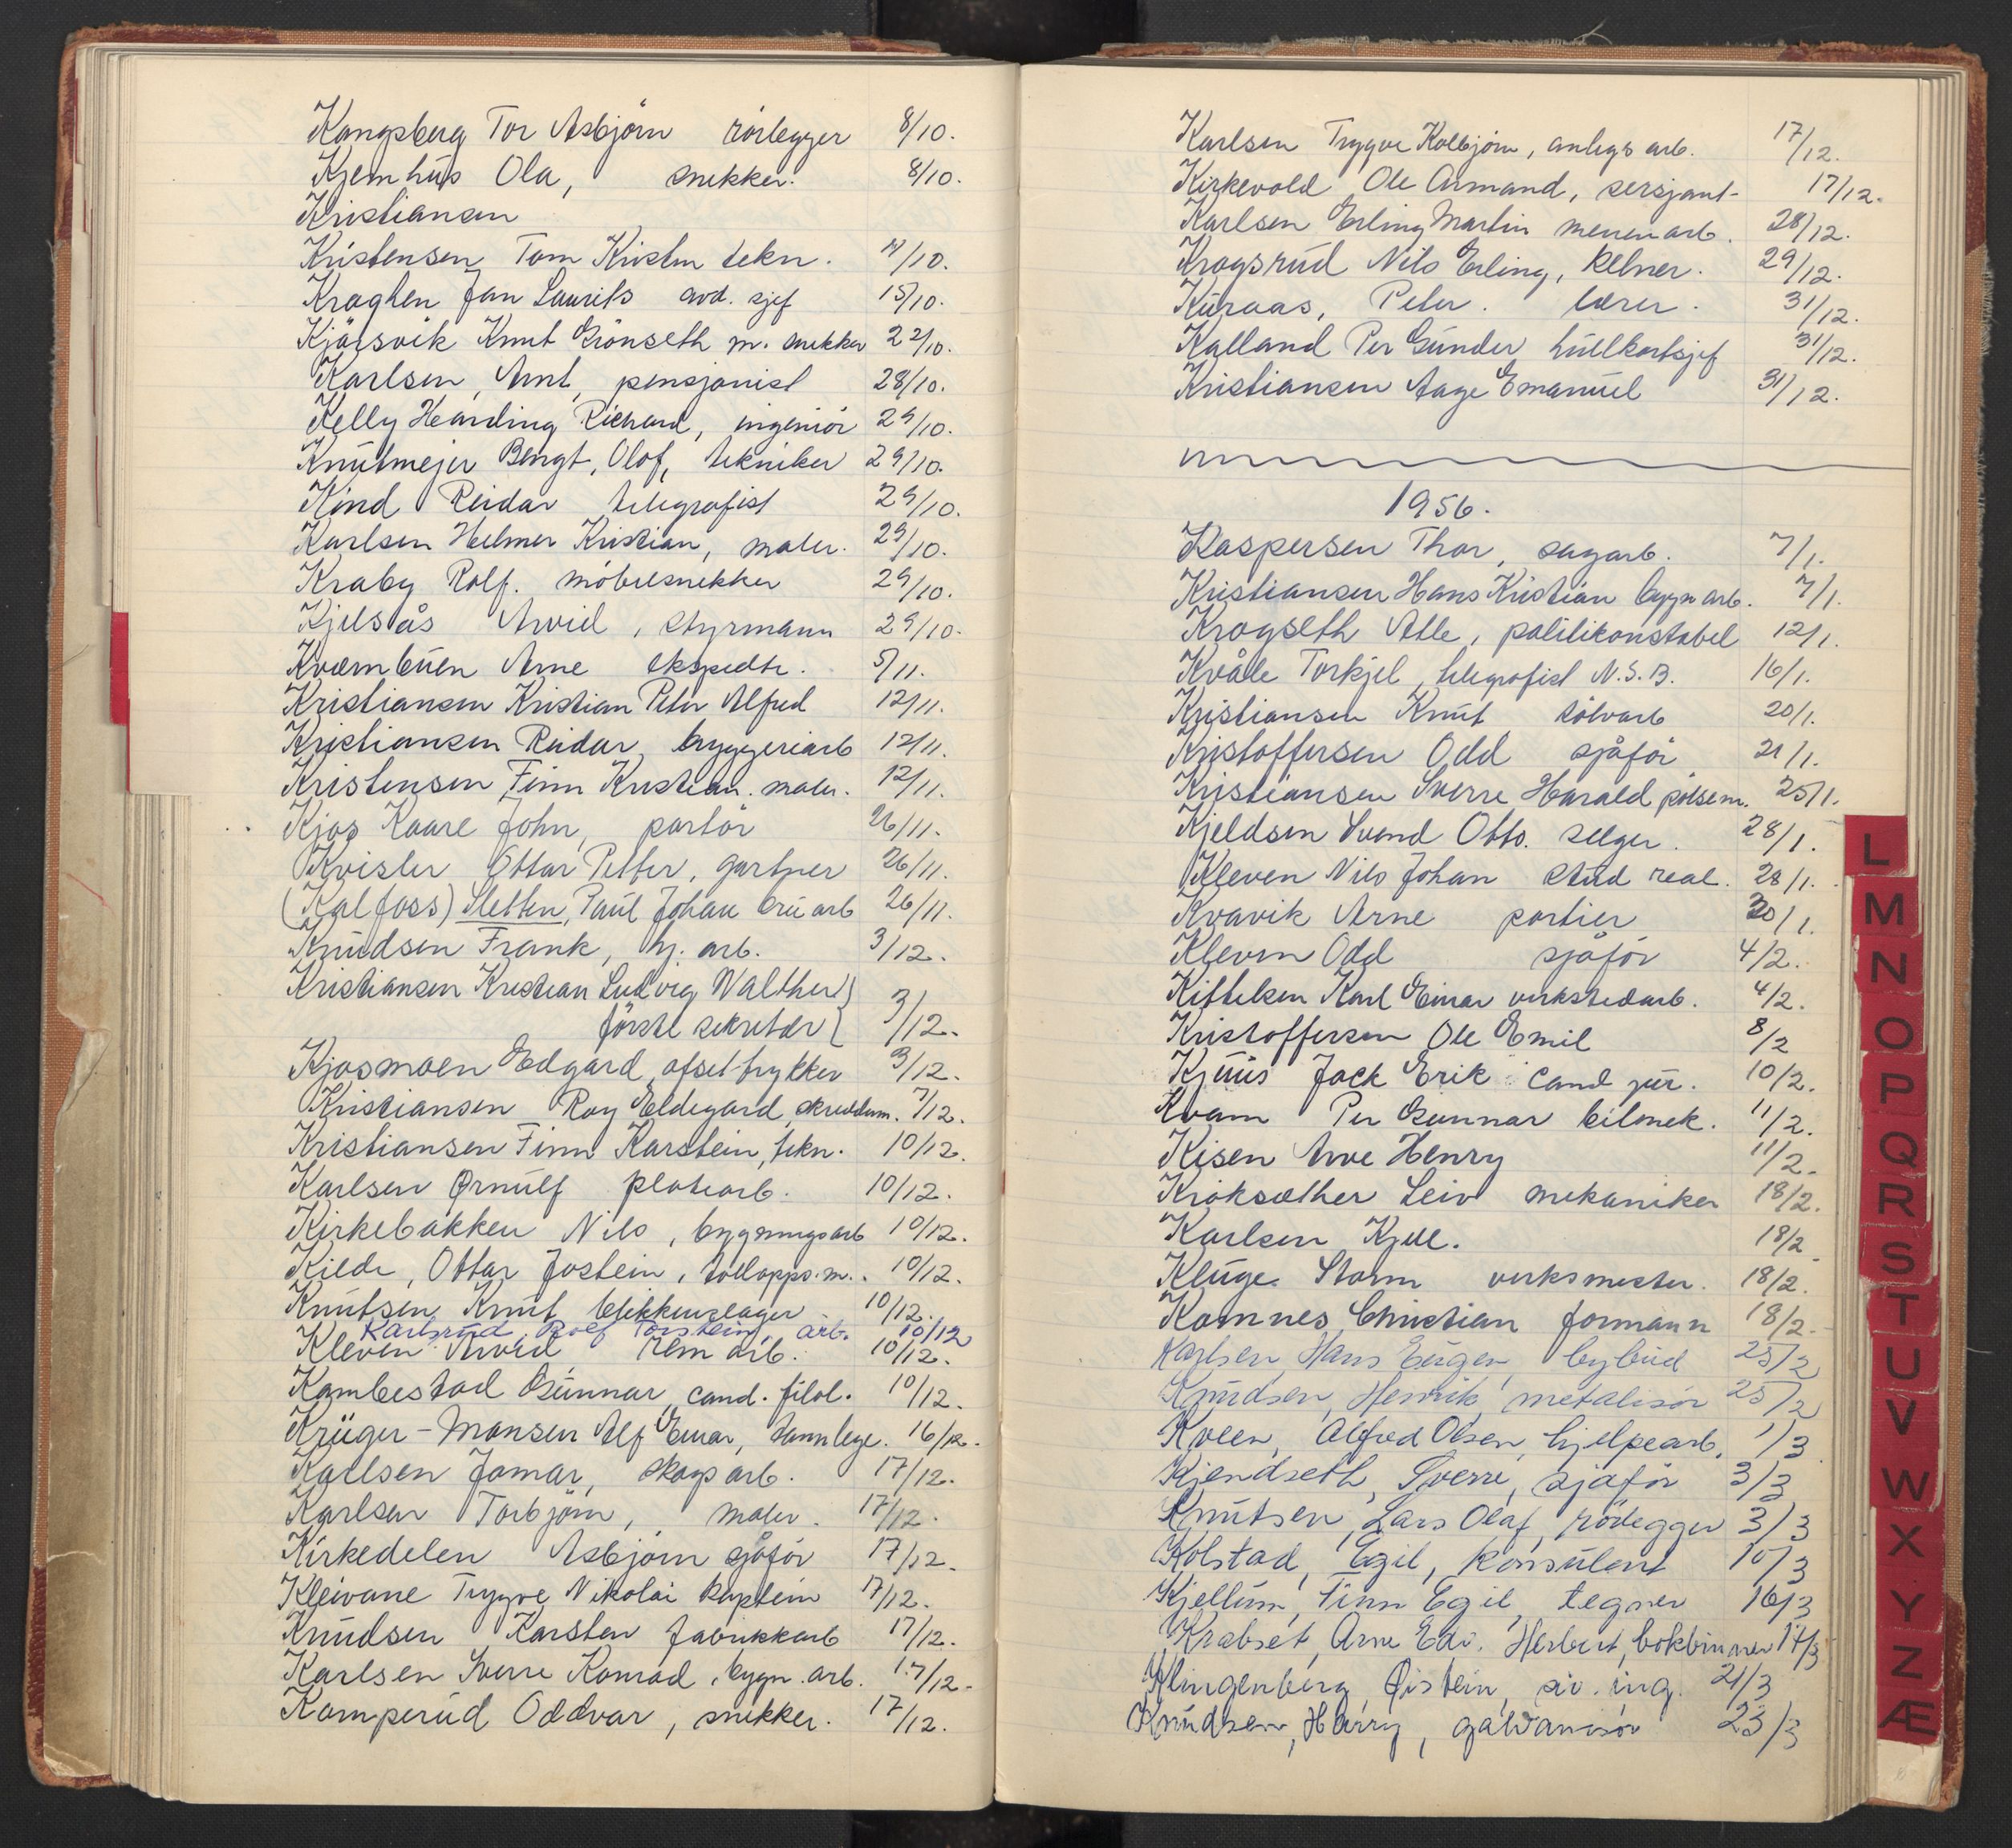 Kongsberg Tor Asbjörn rörlegger 8/10.
Kjemhus Ola, snekker. 8/10.
Kristiansen
Kristensen Tom Kristen tekn. 14/10.
Kroghen Jan Laurits avd. sjef 15/10.
Kjörsvik Knut Grönseth m. snekker 22/10.
Karlsen, Arnt, pensjonist 28/10.
Kelly Hearding Richard, ingeniör 29/10.
Knutmejer Bengt, Olof, tekniker 29/10.
Kind Reidar telegrafist 29/10.
Karlsen Helmer Kristian, maler. 29/10.
Kraby Rolf. möbelsnekker 29/10.
Kjelsås Arvid, styrmann 29/10.
Kværnbuen Arne ekspedtr. 5/11.
Kristiansen Kristian Peter Alfred 12/11.
Kristiansen Reidar, bryggeriarb 12/11.
Kristensen Finn Kristian. maler. 12/11.
Kjos Kaare John, portör 26/11.
Kvisler Ottar Petter, gartner 26/11.
(Kalfoss) Sletten, Paul Johan bruarb 26/11.
Knudsen Frank, hj. arb. 3/12.
Kristiansen Kristian Ludvig Walther }
förste sekretær } 3/12.
Kjosmoen Edgard, ofset-trykker 3/12.
Kristiansen Roy Eldegard, skreddem. 7/12.
Kristiansen Finn Karstein, tekn. 10/12.
Karlsen Ørnulf platearb. 10/12.
Kirkebakken Nils, bygningsarb 10/12.
Kilde, Ottar Jostein, tollopps.m. 10/12.
Knutsen Knut blikkenslager 10/12.
Karlsrud, Rolf Torstein, arb. 10/12
Kleven Arvid rem arb. 10/12.
Kambestad Gunnar, cand. filol. 10/12.
Krüger-Monsen Alf Einar, tannlege. 16/12.
Karlsen Jomar, skogsarb. 17/12.
Karlsen Torbjörn, maler. 17/12.
Kirkedelen Asbjörn sjåför 17/12.
Kleivane Trygve Nikolai kaptein 17/12.
Knudsen Karsten fabrikkarb 17/12.
Karlsen Sverre Konrad, bygn. arb. 17/12.
Kamperud Oddvar, snekker. 17/12.
Karlsen Trygve Kolbjörn, anlegs arb. 17/12.
Kirkevold Ole Armand, sersjant- 17/12.
Karlsen Erling Martin meieriarb. 28/12.
Krogsrud Nils Erling, kelner. 29/12.
Kuraas, Peter. lærer. 31/12.
Kalland Per Gunder hullkortsjef 31/12.
Kristiansen Aage Emanuel 31/12.
1956.
Kaspersen Thor, sagarb. 7/1.
Kristiansen Hans Kristian bygn arb. 7/1.
Krogseth Atle, politikonstabel 12/1.
Kvåle Torkjel, telegrafist N.S.B. 16/1.
Kristiansen Knut sölvarb 20/1.
Kristoffersen Odd sjåför 21/1.
Kristiansen Sverre Harald pölsem. 25/1.
Kjeldsen Svend Otto. selger. 28/1.
Kleven Nils Johan stud real. 28/1.
Kvavik Arne portier 30/1.
Kleven Odd sjåför 4/2.
Kittelsen Karl Einar verkstedarb. 4/2.
Kristoffersen Ole Emil 8/2
Kjuus Jack Erik cand jur. 10/2.
Kvam Per Gunnar bilmek. 11/2.
Kisen Arve Henry 11/2.
Kroksæther Leiv mekaniker 18/2.
Karlsen Kjell. 18/2
Kluge Storm verksmester. 18/2.
Komnes Christian formann 18/2.
Karlsen, Hans Eugen, bybud 25/2
Knudsen, Henrik, metalisör 25/2
Kveen, Alfred Olsen, hjelpearb, 1/3
Kjendseth, Sverre, sjåför 3/3
Knutsen, Lars Olaf, rörlegger 3/3
Kolstad, Egil, konsulent 10/3
Kjellum, Finn Egil, tegner 16/3
Krabset, Arne Edv. Herbert, bokbinner 17/3
Klingenberg, Øistein, siv. ing. 21/3
Knudsen, Harry, galvanisör 23/3
L
M
N
O
P
Q
R
S
T
U
V
W
X
Y
Z
Æ